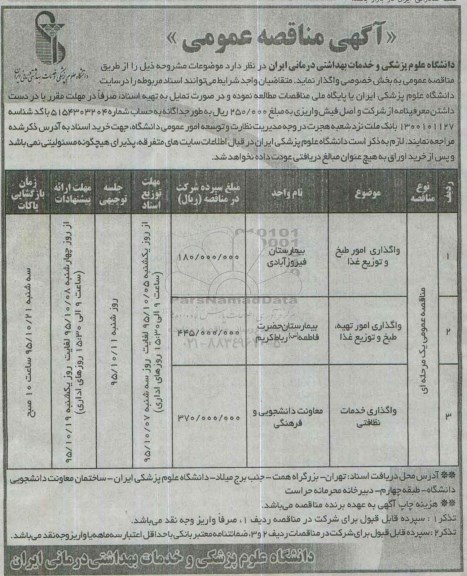 «آگهی مناقصه عمومی»
دانشگاه علوم پزشکی و خدمات بهداشتی درمانی ایران در نظر دارد موضوعات مشروحه ذیل را از طریق
مناقصه عمومی به بخش خصوصی واگذار نماید. متقاضیان واجد شرایط می‌توانند اسناد مربوطه را در سایت
دانشگاه علوم پزشکی ایران یا پایگاه ملی مناقصات مطالعه نموده و در صورت تمایل به تهیه اسناد، صرفاً در مهلت مقرر با در دست
داشتن معرفینامه از شرکت و اصل فیش واریزی به مبلغ ۲۵۰/۰۰۰ ریال به طور جداگانه به حساب شماره ۵۱۵۴۳۰۳۲۰۴ با کد شناسه
۱۳۰۰۱۰۱۱۲۷ بانک ملت نزد شعبه هجرت در وجه مدیریت نظارت و توسعه امور عمومی دانشگاه، جهت خرید اسناد به آدرس ذکر شده
مراجعه نمایند. لازم به ذکر است دانشگاه علوم پزشکی ایران در قبال اطلاعات سایت های متفرقه پذیرای هیچگونه مسئولیتی نمی باشد
و پس از خرید اوراق به هیچ عنوان مبالغ دریافتی عودت داده نخواهد شد.
ردیف
نوع مناقصه
موضوع
نام واحد
مبلغ سپرده شرکت در مناقصه (ریال)
مهلت توزیع اسناد
جلسه توجیهی
مهلت ارائه پیشنهادات
زمان بازگشایی پاکات
۱
واگذاری امور طبخ و توزیع غذا
بیمارستان فیروزآبادی
۱۸۰/۰۰۰/۰۰۰
۲
واگذاری امور تهیه، طبخ و توزیع غذا
بیمارستان حضرت فاطمه (س) رباط کریم
۴۴۵/۰۰۰/۰۰۰
۳
واگذاری خدمات نظافتی
معاونت دانشجویی و فرهنگی
۳۷۰/۰۰۰/۰۰۰
مناقصه عمومی یک مرحله ای
از روز یکشنبه ۹۵/۱۰/۰۵ لغایت روز سه شنبه ۹۵/۱۰/۰۷
(ساعت ۹ الی ۱۵:۳۰ روزهای اداری)
روز شنبه ۹۵/۱۰/۱۱
از روز چهارشنبه ۹۵/۱۰/۰۸ لغایت روز یکشنبه ۹۵/۱۰/۱۹
(ساعت ۹ الی ۱۵:۳۰ روزهای اداری)
سه شنبه ۹۵/۱۰/۲۱ ساعت ۱۰ صبح
** آدرس محل دریافت اسناد: تهران- بزرگراه همت - جنب برج میلاد- دانشگاه علوم پزشکی ایران - ساختمان معاونت دانشجویی
دانشگاه- طبقه چهارم- دبیرخانه محرمانه حراست
** هزینه چاپ آگهی به عهده برنده مناقصه می‌باشد.
تذکر۱: سپرده قابل قبول برای شرکت در مناقصه ردیف ۱، صرفا واریز وجه نقد می‌باشد.
تذکر۲: سپرده قابل قبول برای شرکت در مناقصات ردیف ۲ و ۳، ضمانتنامه معتبر بانکی با حداقل اعتبار سه ماهه یا واریز وجه نقد می‌باشد.
دانشگاه علوم پزشکی و خدمات بهداشتی درمانی ایران